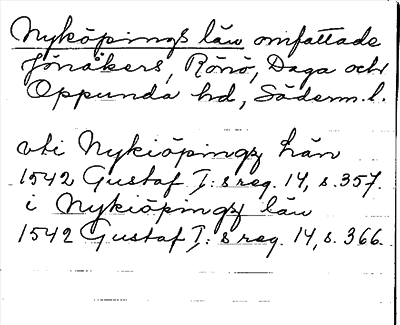 Nyköpings län omfattade
Jönåkers, Rönö, Daga och
Oppunda hd, Söderm.l.
vti Nykiöpingz län
1542 Gustaf I:s reg. 14, s. 357.
i Nykiöpingz län
1542 Gustaf I:s reg. 14, s. 366.